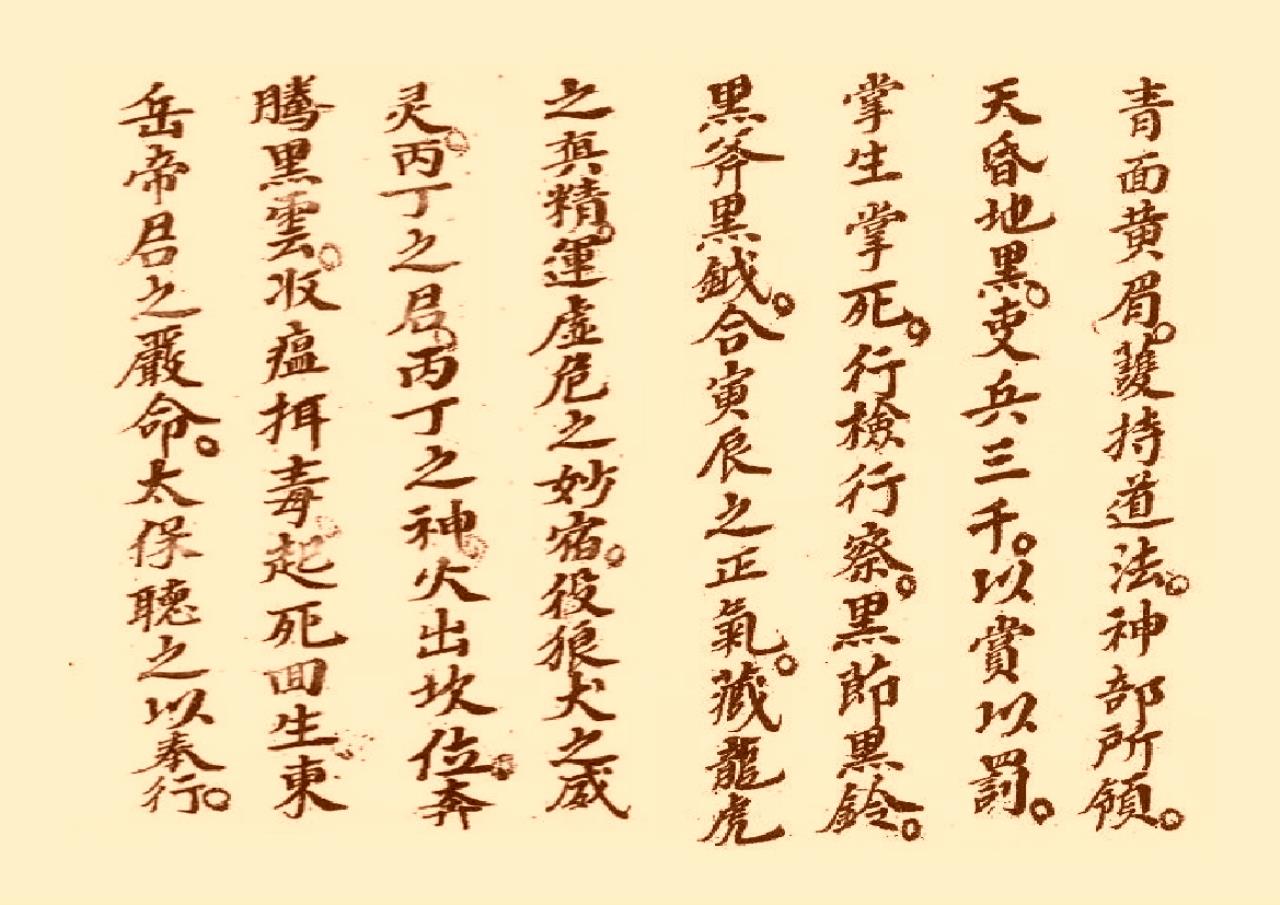 青面黃眉。護持道法。神部所領。
天昏地黑。吏兵三千。以賞以罰。
掌生掌死。行檢行察。黑節黑鈴。
黑斧黑鉞。合寅辰之正氣。藏龍虎
之真精。運虛危之妙宿。役狼犬之威
灵。丙丁之君。丙丁之神。火出坎位。奔
騰黑雲。收瘟揖毒。起死回生。東
岳帝君之嚴命。太保聽之以奉行。